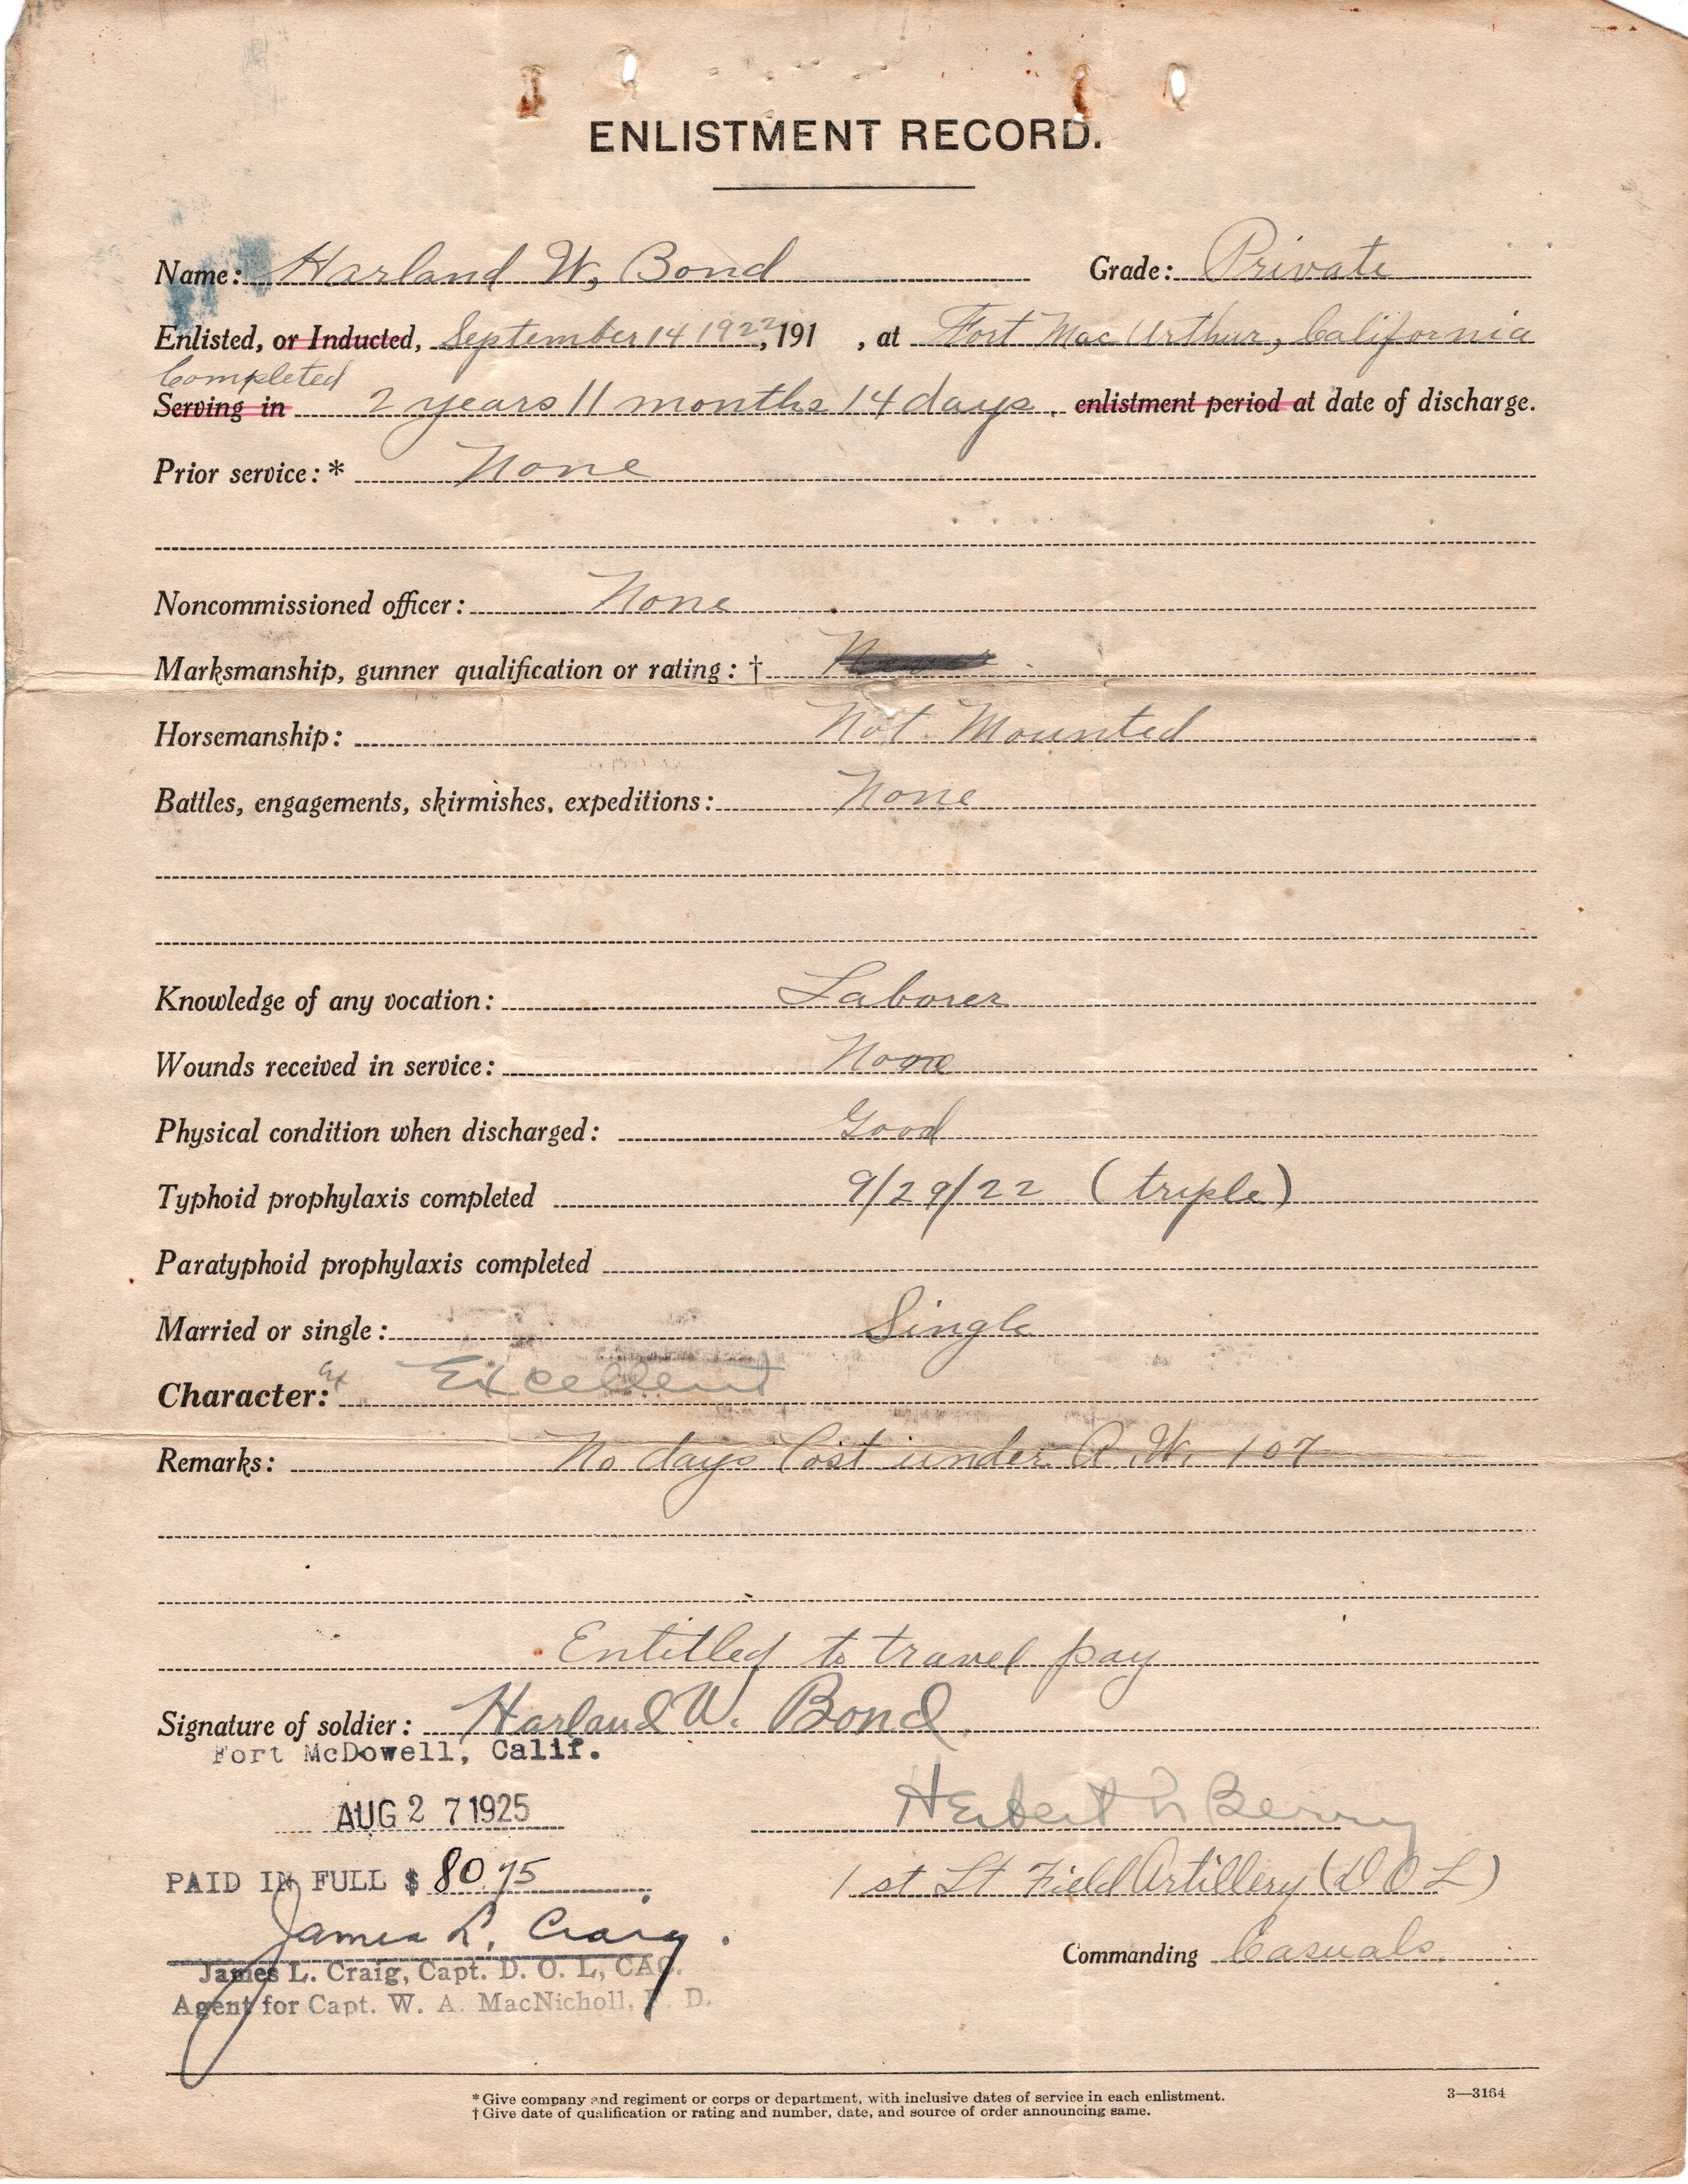 ENLISTMENT RECORD.
Name: Harland W. Bond Grade: Private
Enlisted, or Inducted, September 14 1922, 191 , at Fort Mac Arthur, California
Completed
Serving in 2 years 11 months 14 days. enlistment period at date of discharge.
Prior service:* None
Noncommissioned officer: None
Marksmanship, gunner qualification or rating: †
Horsemanship: Not Mounted
Battles, engagements, skirmishes, expeditions: None
Knowledge of any vocation: Laborer
Wounds received in service: None
Physical condition when discharged: Good
Typhoid prophylaxis completed 9/29/22 (triple)
Paratyphoid prophylaxis completed
Married or single: Single
Character: Ex Excellent
Remarks: No days lost under A.W. 107
Entitled to travel pay
Signature of soldier: Harland W. Bond
Fort McDowell, Calif.
AUG 27 1925 Herbert L Berry
PAID IN FULL $ 80.75 1st Lt Field Artillery (D O L)
James L. Craig. Commanding Casuals
James L. Craig, Capt. D. O. L, CAC.
Agent for Capt. W. A. MacNicholl, D.
* Give company and regiment or corps or department, with inclusive dates of service in each enlistment. 3—3164
† Give date of qualification or rating and number, date, and source of order announcing same.